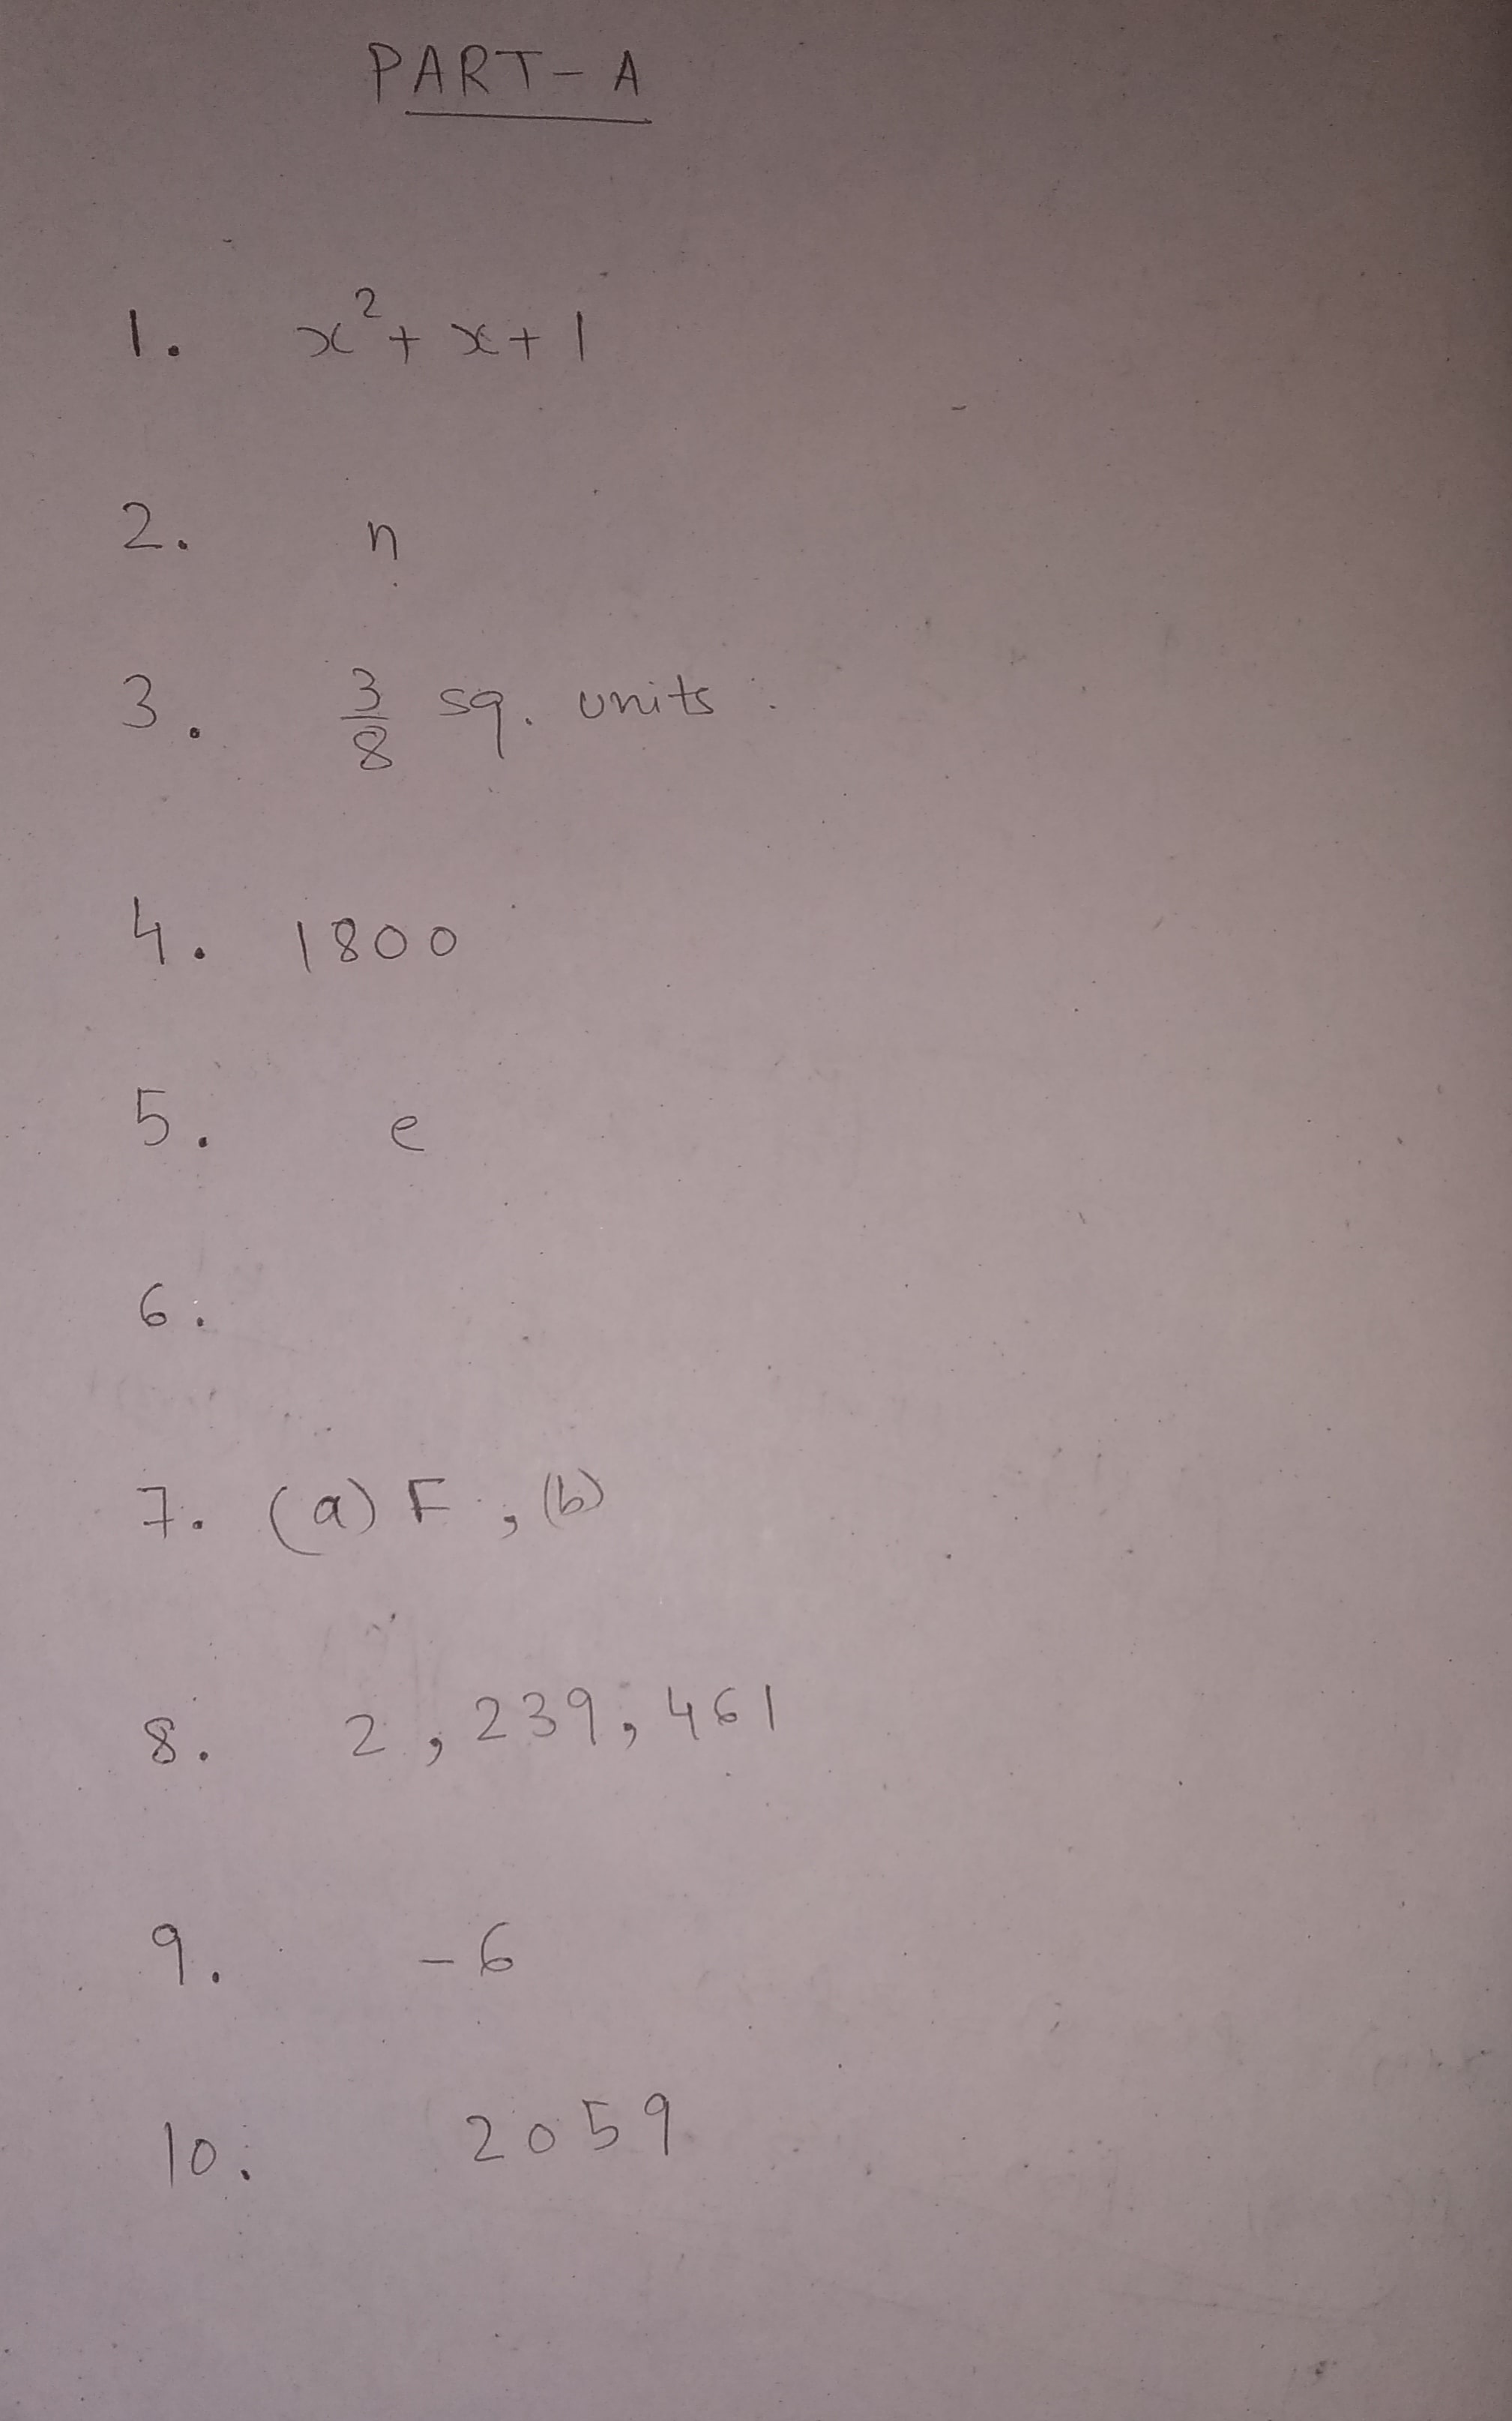 PART-A
1. x²+x+1
2. n
3. 3/8 sq. units.
4. 1800
5. e
6.
7. (a) F, (b)
8. 2, 239, 461
9. -6
10. 2059